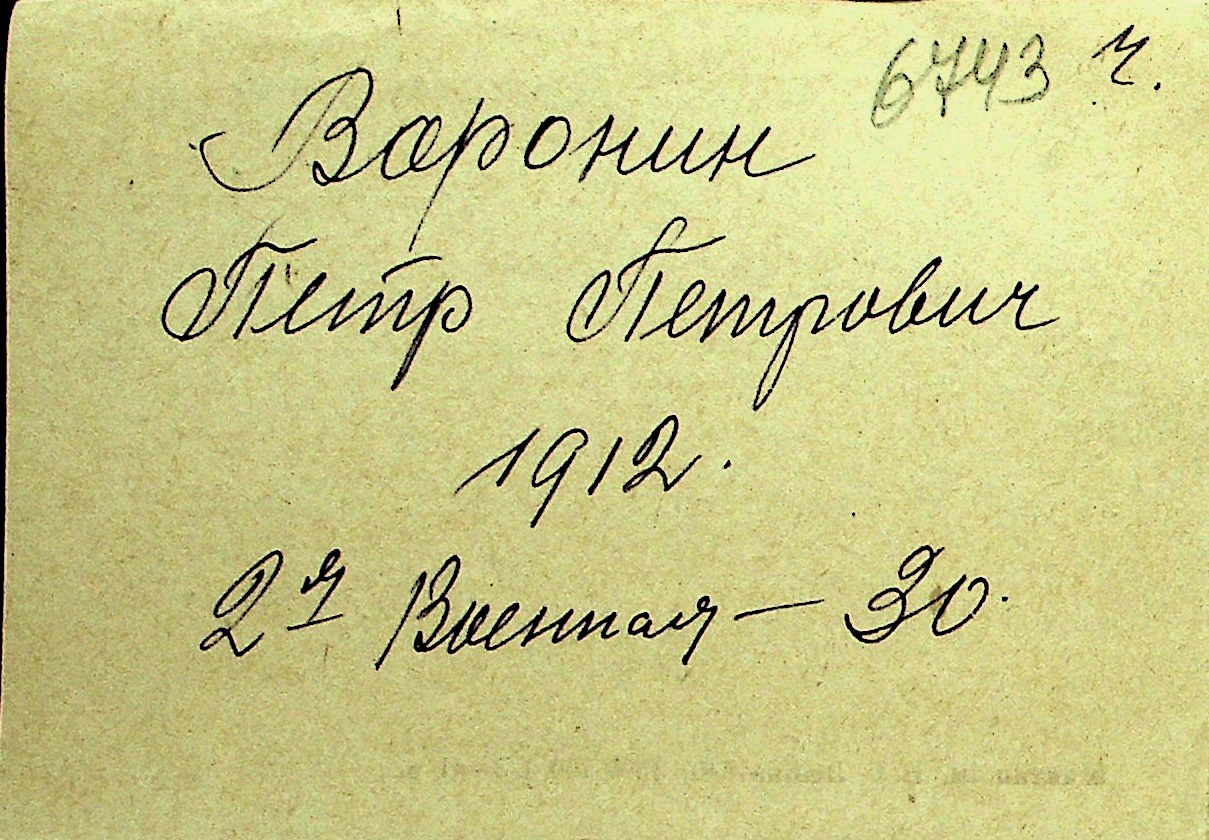 6743 г.
Воронин
Петр Петрович
1912.
2я Военная — 30.